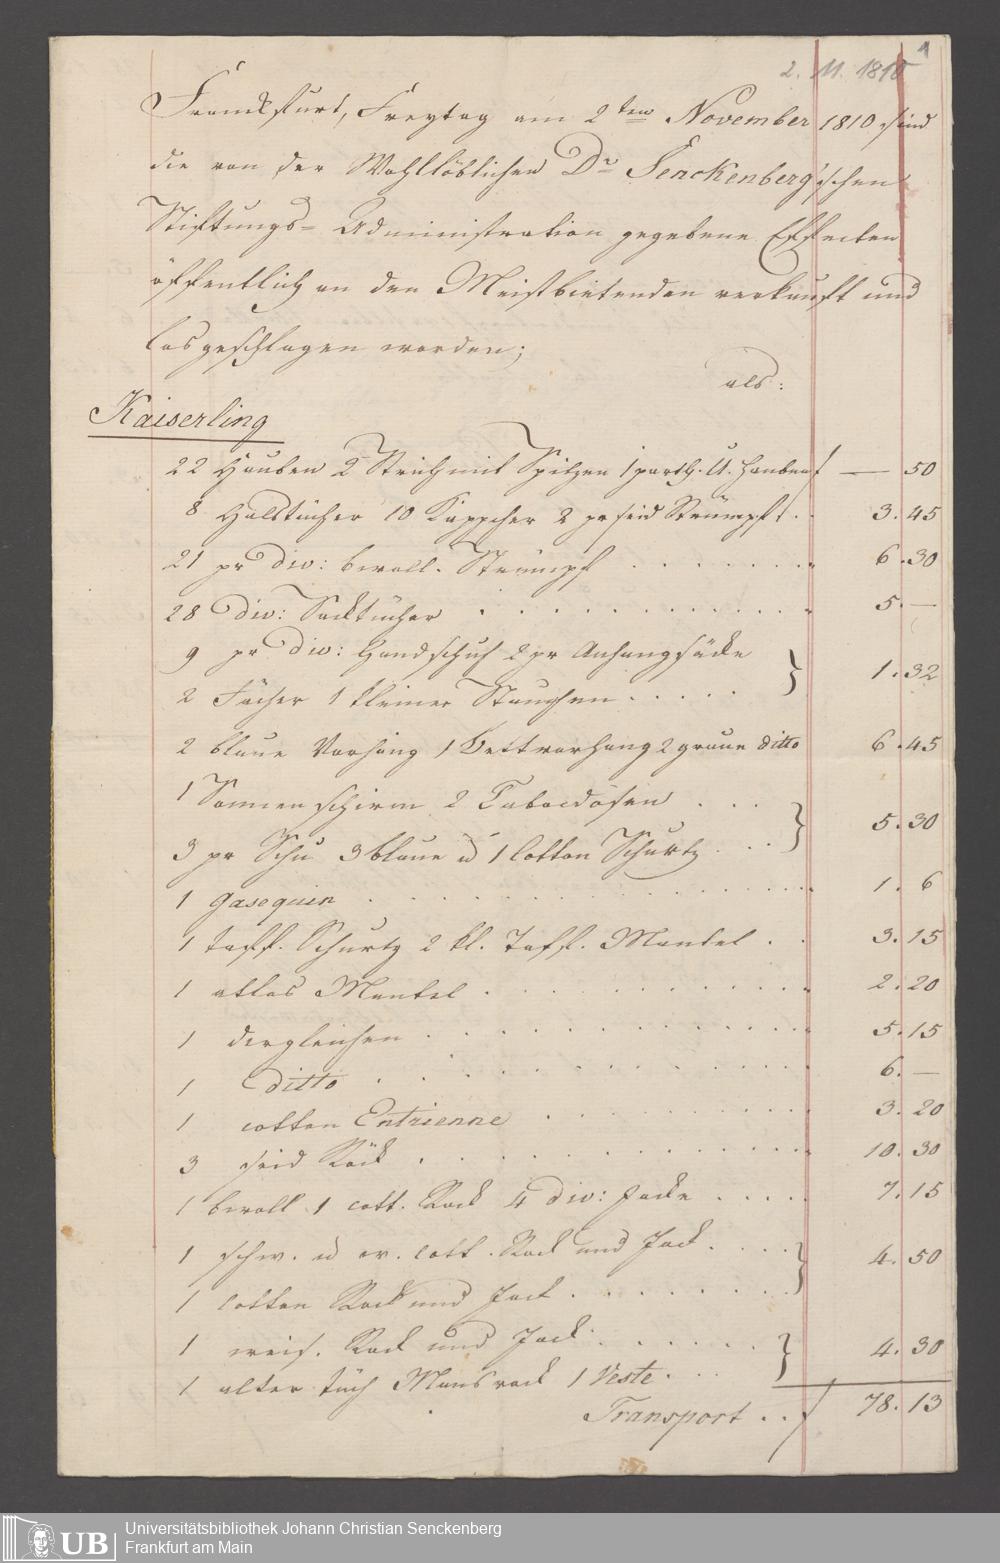 1
2. 11. 1810
Franckfurt, Freytag am 2ten November 1810 sind
die von der Wohllöblichen Dr Senckenberg'schen
Stiftungs- Administration gegebene Effecten
öffentlich an den Meistbietenden verkauft und
losgeschlagen worden;
als:
Kaiserling
22 Hauben 2 Strich mit Spitzen 1 parth. U. Hauben f — 50
8 Halstücher 10 Käppcher 2 pr seid Strümpf . . 3. 45
21 pr div: bwoll. Strümpf . . . . . . . 6. 30
28 div: Sacktücher . . . . . . . . . 5. —
9 pr div: Handschuh 2 pr Anhangsäcke
2 Fächer 1 kleiner Stauchen . . . . . } 1. 32
2 blaue Vorhäng 1 Bettvorhang 2 graue ditto 6. 45
1 Sonnenschirm 2 Tabacdosen . . .
3 pr Schu 3 blaue u 1 Cotton Schurtz . . . } 5. 30
1 Gasequin . . . . . . . . . . 1. 6
1 taff. Schurtz 2 kl. Taff. Mantel . . 3. 15
1 atlas Mantel . . . . . . . . . 2. 20
1 dergleichen . . . . . . . . . . 5. 15
1 ditto . . . . . . . . . . 6. —
1 cotton Entrienne . . . . . . . 3. 20
3 seid Röck . . . . . . . . . . 10. 30
1 bwoll 1 cott. Rock 4 div: Jacke . . . . . 7. 15
1 schw. u cott. Rock und Jack . . . .
1 cotton Rock und Jack . . . . . . . . } 4. 50
1 weis. Rock und Jack . . . . . .
1 alter tuch Mansrock 1 Veste . . . } 4. 30
Transport . . f 78. 13
UB
Universitätsbibliothek Johann Christian Senckenberg
Frankfurt am Main